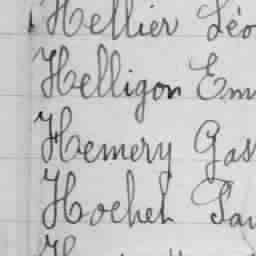 Hellier Léo
Helligon Em
Hemery Gas
Hocheh